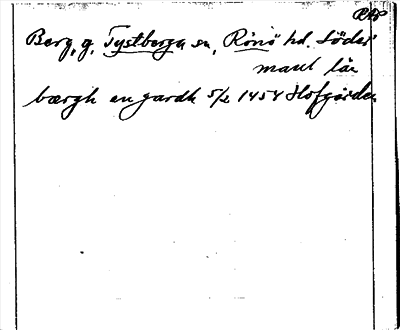 Berg, g. Tystberga sn, Rönö hd. Söder
manl län
bærgh en gardh 5/2 1454 Hofgården